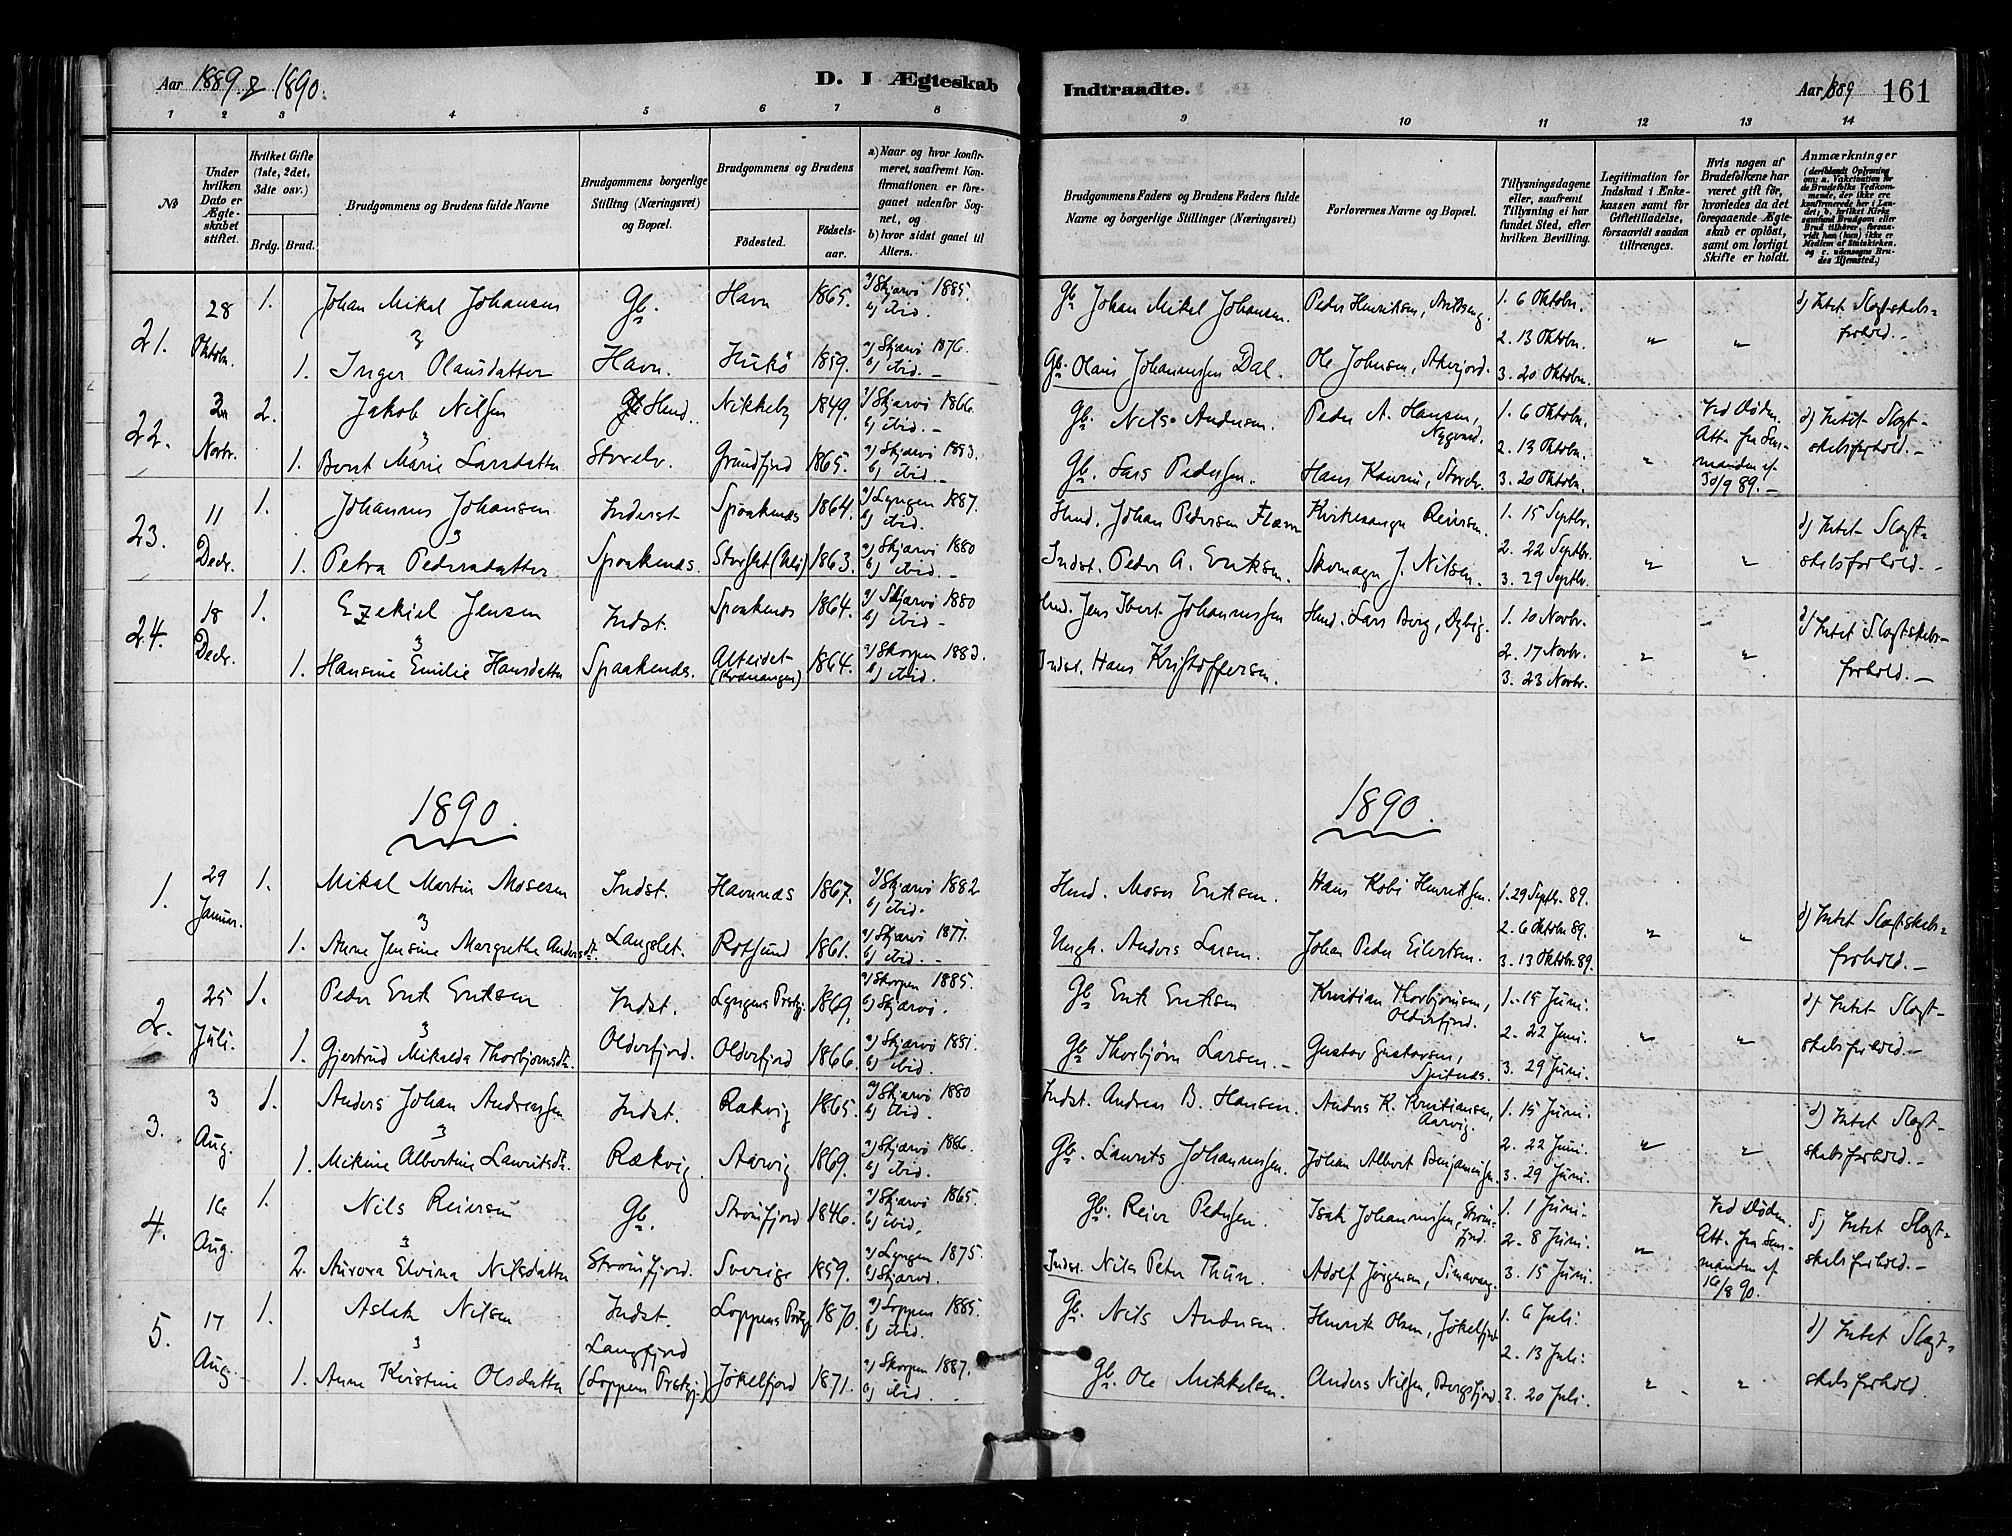 Aar 1889 & 1890.
D. I Ægteskab
Indtraadte.
Aar 1889 161
1 2 3 4 5 6 7 8 9 10 11 12 13 14
No
Under hvilken Dato er Ægteskabet stiftet.
Hvilket Gifte (1ste, 2det, 3die osv.)
Brdg. Brud.
Brudgommens og Brudens fulde Navne
Brudgommens borgerlige Stilling (Næringsvei) og Bopæl.
Brudgommens og Brudens
Födested. Födselsaar.
a) Naar og hvor konfirmeret, saafremt Konfirmationen er foregaaet udenfor Sognet, og
b) hvor sidst gaaet til Alters.
Brudgommens Faders og Brudens Faders fulde Navne og borgerlige Stillinger (Næringsvei)
Forlovernes Navne og Bopæl.
Tillysningsdagene eller, saafremt Tillysning ei har fundet Sted, efter hvilken Bevilling.
Legitimation for Indskud i Enkekassen samt for Giftetilladelse, forsaavidt saadan tiltrænges.
Hvis nogen af Brudefolkene har været gift för, hvorledes da det foregaaende Ægteskab er oplöst, samt om lovligt Skifte er holdt.
Anmærkninger
21. 28 Oktobr.
1. Johan Mikal Johansen Gb. Havn 1865. a) Skjærvö 1885. b) ibid. Gb. Johan Mikal Johansen. Peder Henriksen, 1. 6 Oktobr.
2. 13 Oktobr. " " d) Intet Slagtskabsforhold.
1. Inger Olausdatter Havn. Hukö 1859. a) Skjærvö 1876. b) ibid. Gb. Olaus Johannessen Dal. Ole Johnsen, 3. 20 Oktobr.
22. 2 Novbr.
2. Jakob Nilsen Hmd. Nikkeby 1849. a) Skjærvö 1866. b) ibid. Gb. Nils Andersen. Peder A. Hansen, 1. 6 Oktobr.
2. 13 Oktobr. " Ved Döden. Att. fra Lensmanden af 30/9 89. d) Intet Slagtskabsforhold.
1. Berit Marie Larsdatter Storelv. Grundfjord 1865. a) Skjærvö 1883. b) ibid. Gb. Lars Pedersen. 3. 20 Oktobr.
23. 11 Decbr.
1. Johannes Johansen Inderst. Spaaknæs 1864. a) Lyngen 1887. b) ibid. Hmd. Johan Pedersen Kirkesanger Reiersen. 1. 15 Septbr.
2. 22 Septbr. " " d) Intet Slagtskabsforhold.
1. Petra Pedersdatter Spaaknæs. 1863. a) Skjærvö 1880 b) ibid. Indst. Peder A. Eriksen. Skomager J. Nilsen. 3. 29 Septbr.
24. 18 Decbr.
1. Ezekiel Jensen Indst. Spaaknæs 1864. a) Skjærvö 1880 b) ibid Hmd. Jens Johannessen Hmd. Lars Berg, 1. 10 Novbr.
2. 17 Novbr. " " d) Intet Slagtskabsforhold.
1. Hansine Emilie Hansdatter Spaaknæs. Alteidet (Kvænangen) 1864. a) Skorpen 1883. b) ibid. Indst. Hans Kristoffersen. 3. 23 Novbr.
1890. 1890.
1. 29 Januar.
1. Mikal Martin Mosesen Indst. Havnnæs 1867. a) Skjærvö 1882 b) ibid. Hmd. Moses Eriksen. Hans Henriksen. 1. 29 Septbr. 89.
2. 6 Oktobr 89. " " d) Intet Slagtskabsforhold.
1. Anne Jensine Margrethe Andersdtr. Langslet. Rotsund 1861. a) Skjærvö 1877. b) ibid. Ungk. Anders Larsen. Johan Peder Eilertsen. 3. 13 Oktobr. 89.
2. 25 Juli.
1. Peder Erik Eriksen Indst. Lyngens Prstgj. 1869. a) Skorpen 1885. b) Skjærvö. Gb. Erik Eriksen Kristian Thorbjörnsen, Olderfjord. 1. 15 Juni.
2. 22 Juni. " " d) Intet Slagtskabsforhold.
1. Gjertrud Mikalda Thorbjörnsdtr. Olderfjord. Olderfjord 1866. a) Skjærvö 1881. b) ibid. Gb. Thorbjörn Larsen. Gustav Gustavsen, Spitnæs. 3. 29 Juni.
3. 3 Aug.
1. Anders Johan Andreassen Indst. Rækvig 1865. a) Skjærvö 1880 b) ibid. Indst. Andreas B. Hansen. Anders K. Kristiansen, Aarvig. 1. 15 Juni.
2. 22 Juni. " " d) Intet Slagtskabsforhold.
1. Mikine Albertine Lauritsdtr. Rækvig. Aarvig 1869. a) Skjærvö 1886. b) ibid. Gb. Laurits Johannessen. Johan Albert Benjaminsen. 3. 29 Juni.
4. 16 Aug.
1. Nils Reiersen Gb. Strömfjord 1846. a) Skjærvö 1865. b) ibid. Gb. Reier Pedersen. Isak Johannessen, Strömfjord. 1. 1 Juni.
2. 8 Juni. " Ved Döden. Att. fra Lensmanden af 16/8 90. d) Intet Slagtskabsforhold.
2. Aurora Elvina Nilsdatter Strömfjord. Sverige 1859. a) Lyngen 1875. b) Skjærvö. Indst. Nils Peter Thun. Adolf Jörgensen, 3. 15 Juni.
5. 17 Aug.
1. Aslak Nilsen Indst. Langfjord (Loppens Prstgj.) Loppens Prstgj. 1870. a) Loppen 1885. b) ibid. Gb. Nils Andersen. Henrik Olsen, Jökelfjord 1. 6 Juli.
2. 13 Juli. " " d) Intet Slagtskabsforhold
1. Anne Kristine Olsdatter Jökelfjord 1871. a) Skorpen 1887. b) ibid. Gb. Ole Mikkelsen. Anders Nilsen, Bergsfjord 3. 20 Juli.